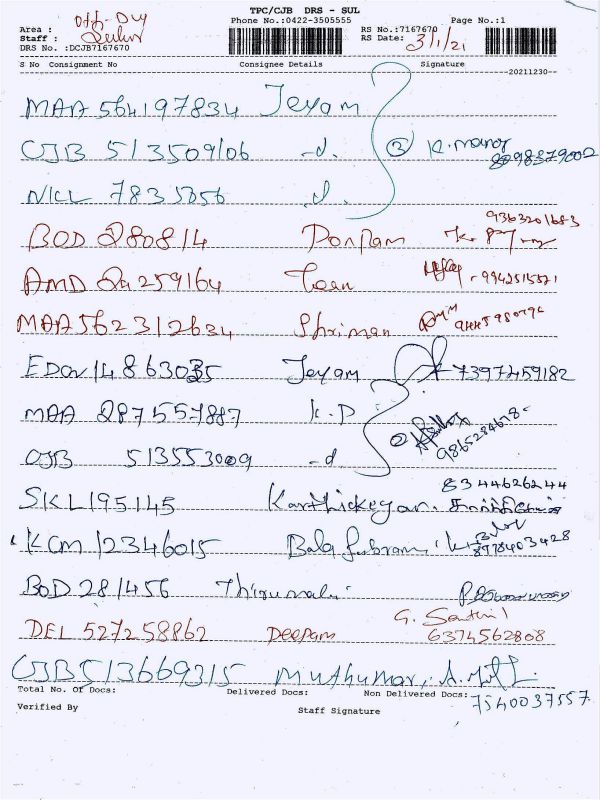 TPC/CJB DRS - SUL
Phone No.:0422-3505555 Page No.:1
Area : Off-Dy
Staff : Sulur
RS No.:7167670
RS Date: 3/1/21
DRS No. :DCJB7167670
S No Consignment No Consignee Details Signature
20211230
MAA 564197834 Jeyam
CJB 513509106 -d. ③ K. Manoj
9002
NKL 7835356 d.
9363201683
BOD 280814
AMD 82259164 - 9942515571
MAA 562312634 Shriman
EDO 14863035 Jeyam 7397459182
MAA 287557887 K.P ②
9865284678
CJB 513553009 -d
8344626244
SKL195145 Karthickeyan.
KCM 12346015 Bala Subram 8778403428
BOD 281456 Thirumalai
G. Senthil
DEL 527258862 Deepam 6374562808
CJB513669315 Muthumar,
Total No. Of Docs: Delivered Docs: Non Delivered Docs:
7540037557
Verified By Staff Signature